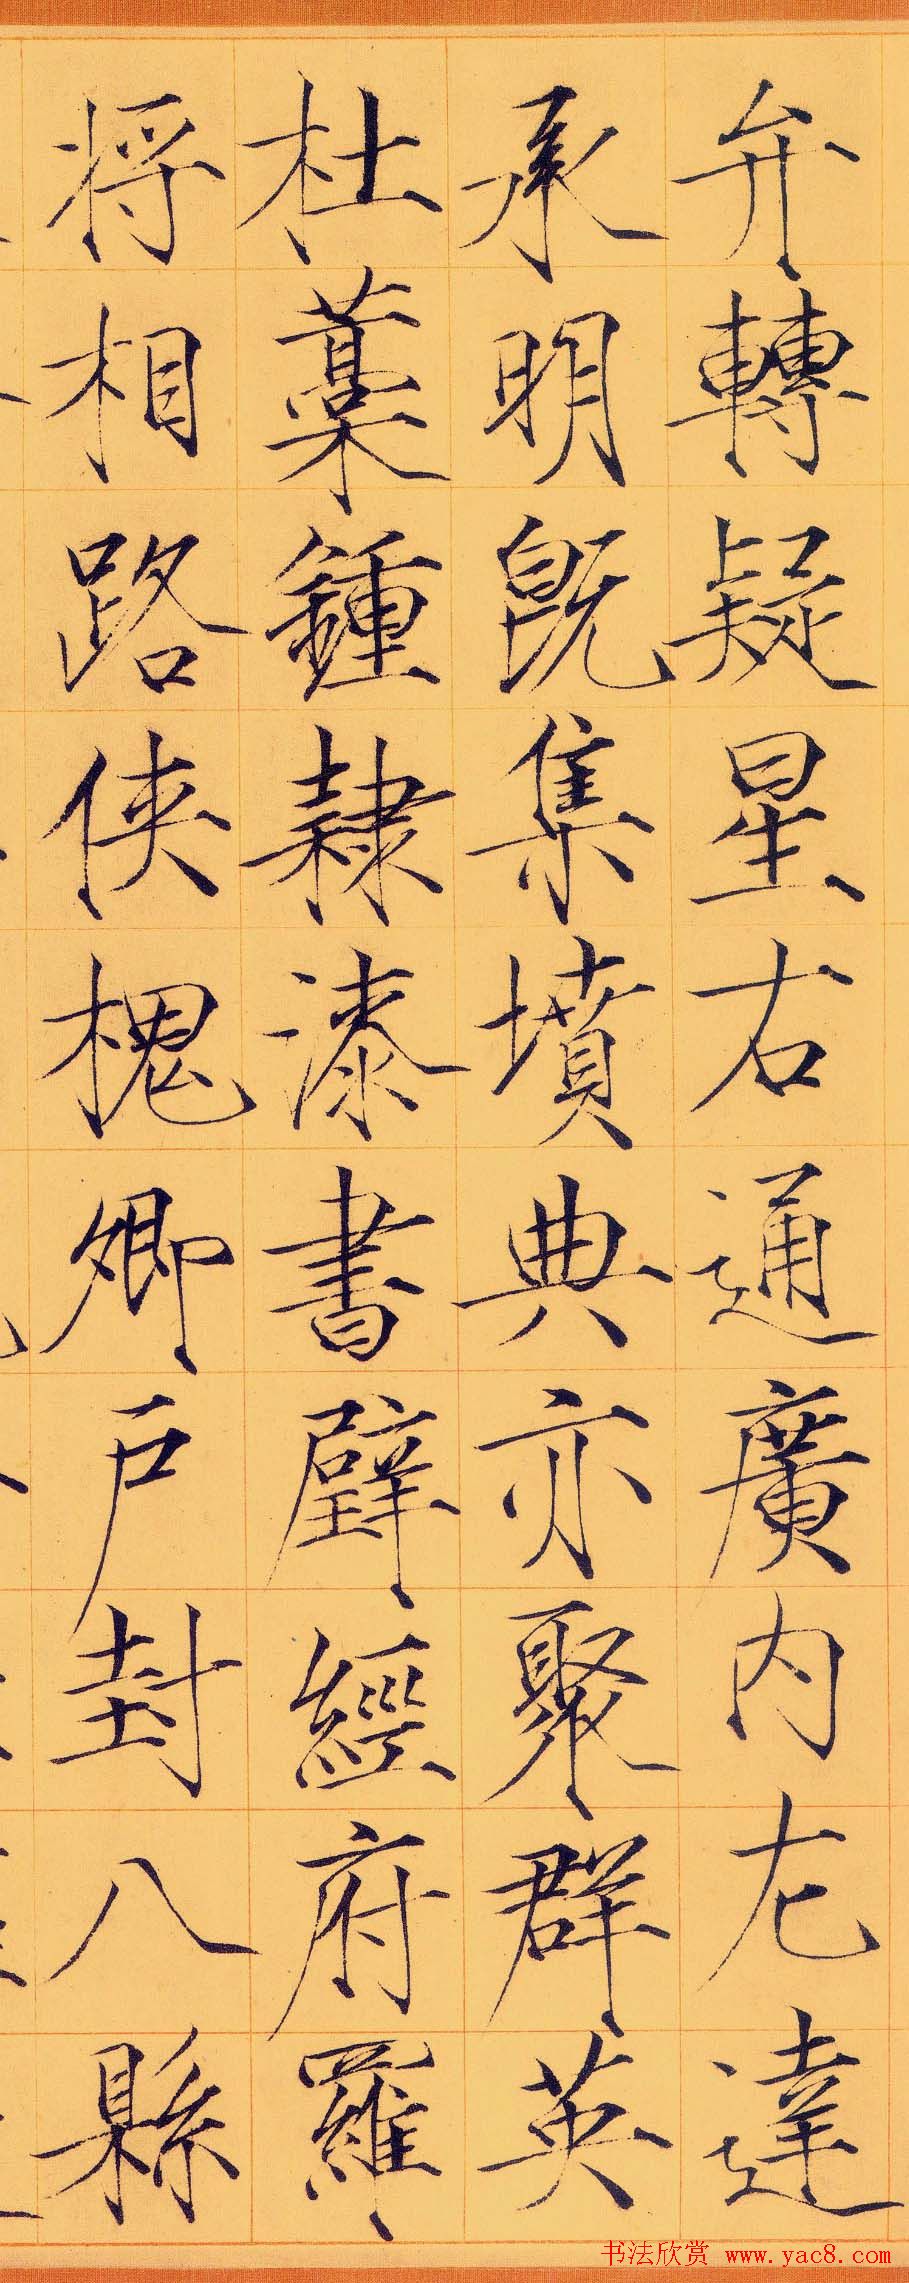 弁轉疑星右通廣内尢達
承明既集墳典亦聚群英
杜藁鍾隸漆書壁經府羅
将相路侠槐卿戶封八縣
书法欣赏 www.yac8.com